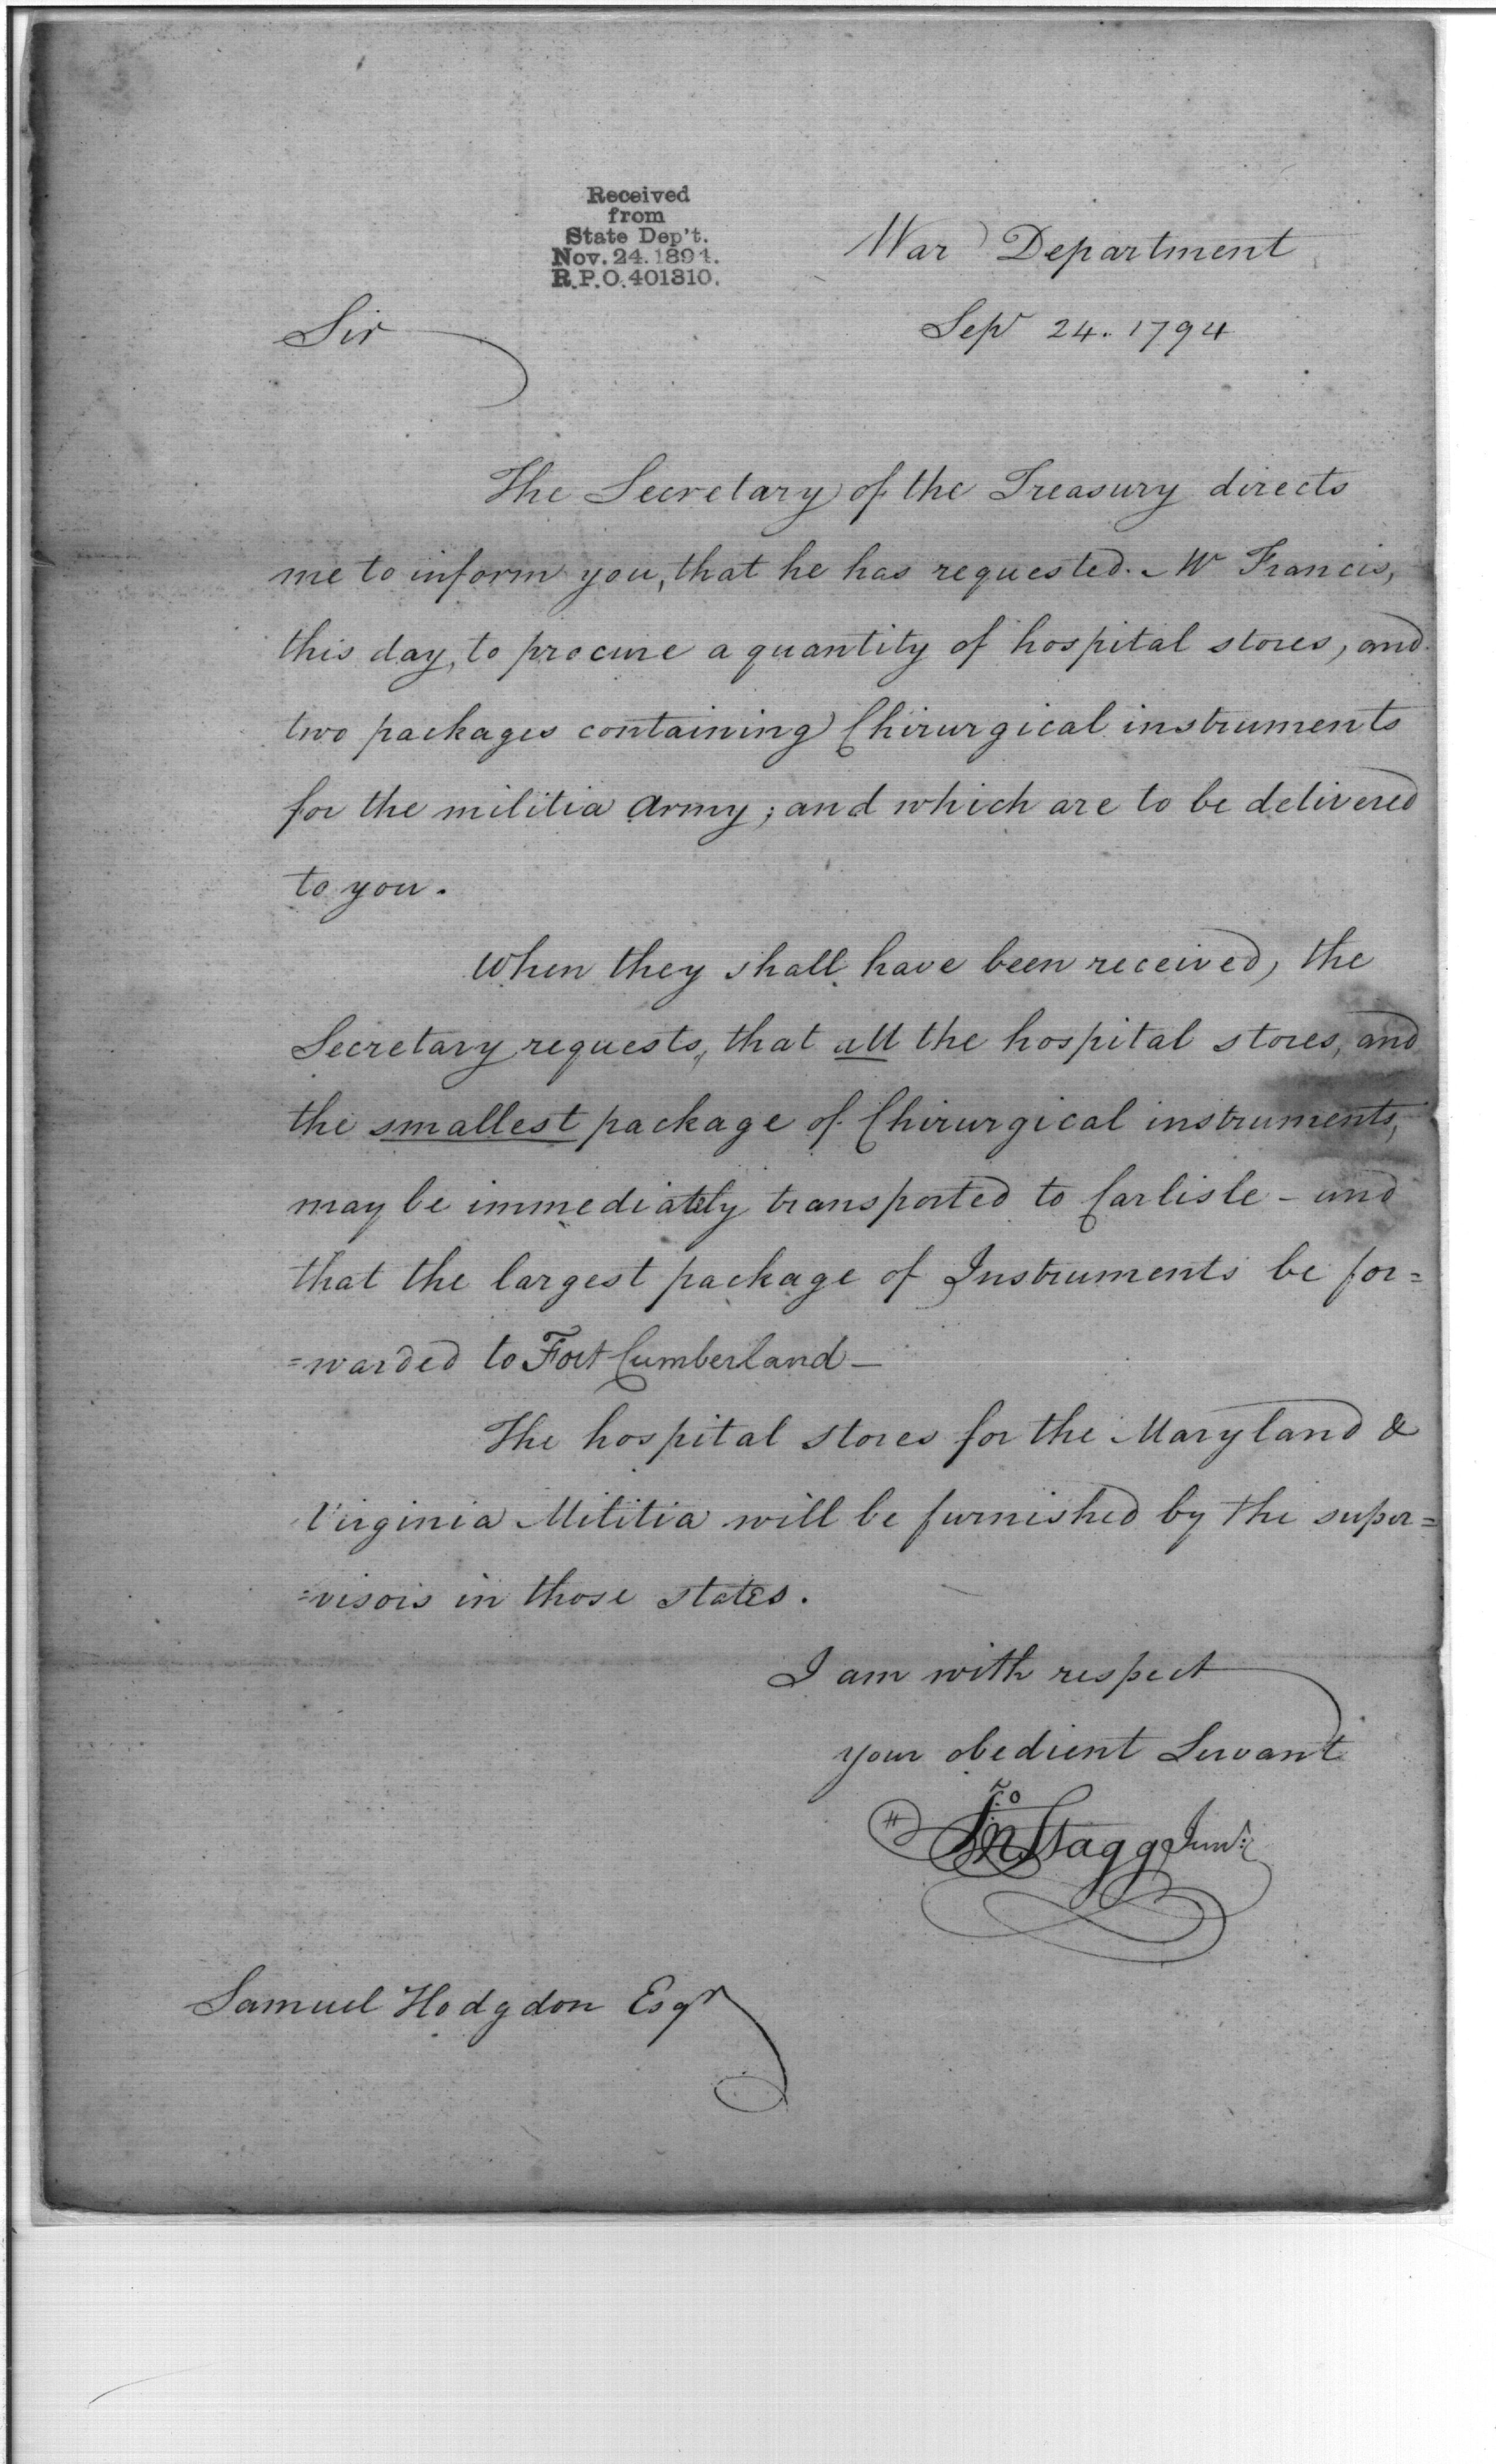 Received
from
State Dep't.
Nov. 24. 1894.
R.P.O. 401310.
War Department
Sepr 24. 1794
Sir
The Secretary of the Treasury directs
me to inform you, that he has requested Mr Francis,
this day, to procure a quantity of hospital stores, and
two packages containing Chirurgical instruments
for the militia Army; and which are to be delivered
to you.
When they shall have been received, the
Secretary requests, that all the hospital stores, and
the smallest package of Chirurgical instruments,
may be immediately transported to Carlisle - and
that the largest package of Instruments be for=
=warded to Fort Cumberland -
The hospital stores for the Maryland &
Virginia Militia will be furnished by the super=
=visors in those states.
I am with respect
your obedient Servant
Jno Stagg Junr:
Samuel Hodgdon Esqr